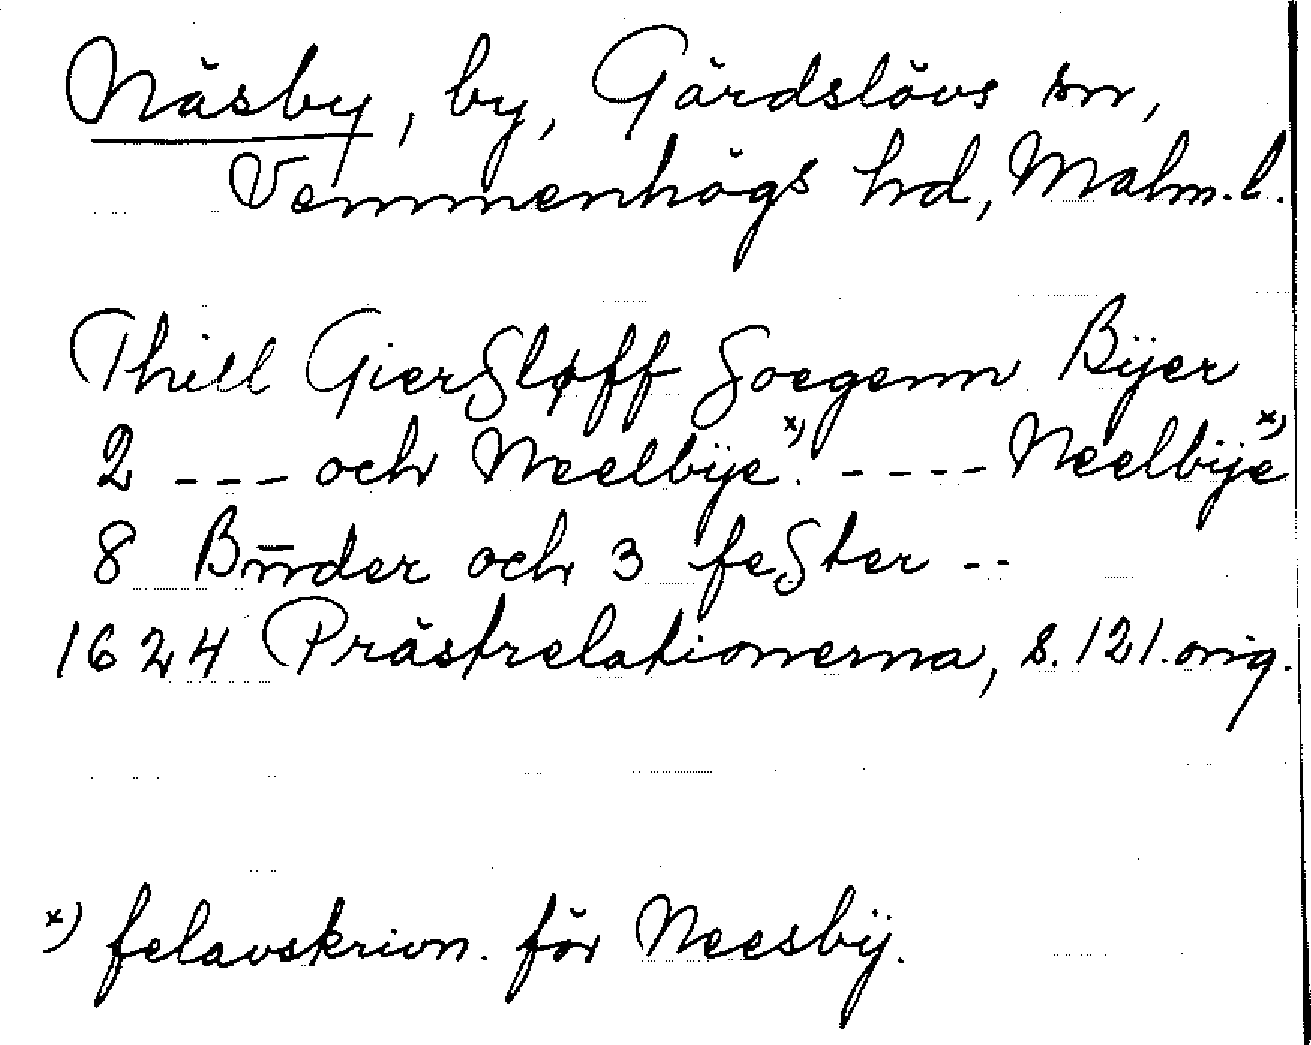 Näsby, by, Gärdslövs sn,
Vemmenhögs hd, Malm.l.
Thill Giersløff Soegenn Bÿer
2 --- och Neelbÿe x) ---- Neelbÿe x)
8 Bnnder och 3 fester --
1624 Prästrelationerna, s. 121. orig.
x) felavskrivn. för Neesbÿ.